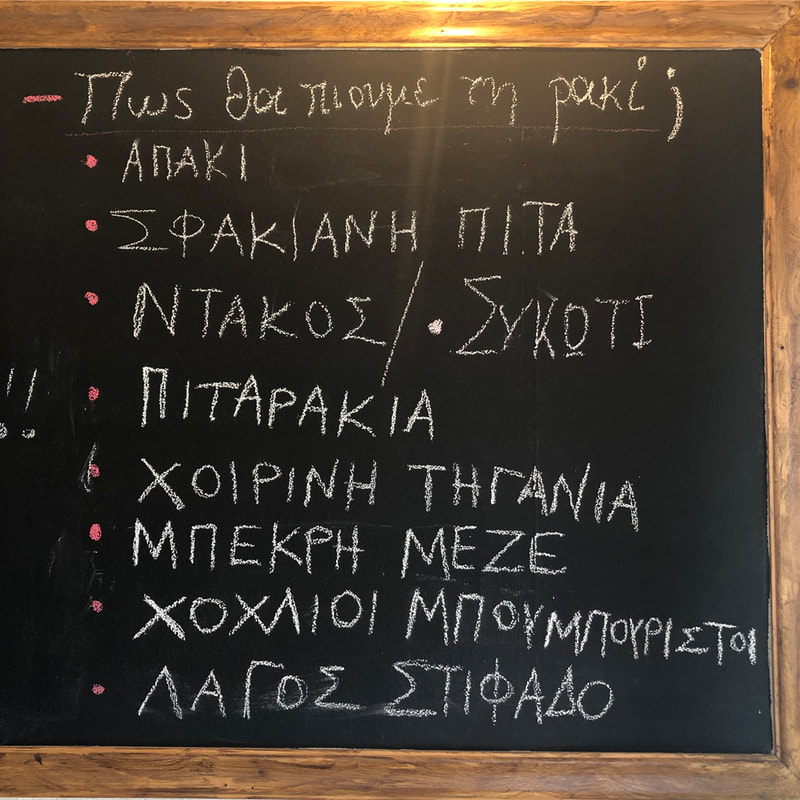 - Πως θα πιουμε τη ρακί;
• ΑΠΑΚΙ
• ΣΦΑΚΙΑΝΗ ΠΙΤΑ
• ΝΤΑΚΟΣ / • ΣΥΚΩΤΙ
• ΠΙΤΑΡΑΚΙΑ
!!
• ΧΟΙΡΙΝΗ ΤΗΓΑΝΙΑ
• ΜΠΕΚΡΗ ΜΕΖΕ
• ΧΟΧΛΙΟΙ ΜΠΟΥΜΠΟΥΡΙΣΤΟΙ
• ΛΑΓΟΣ ΣΤΙΦΑΔΟ